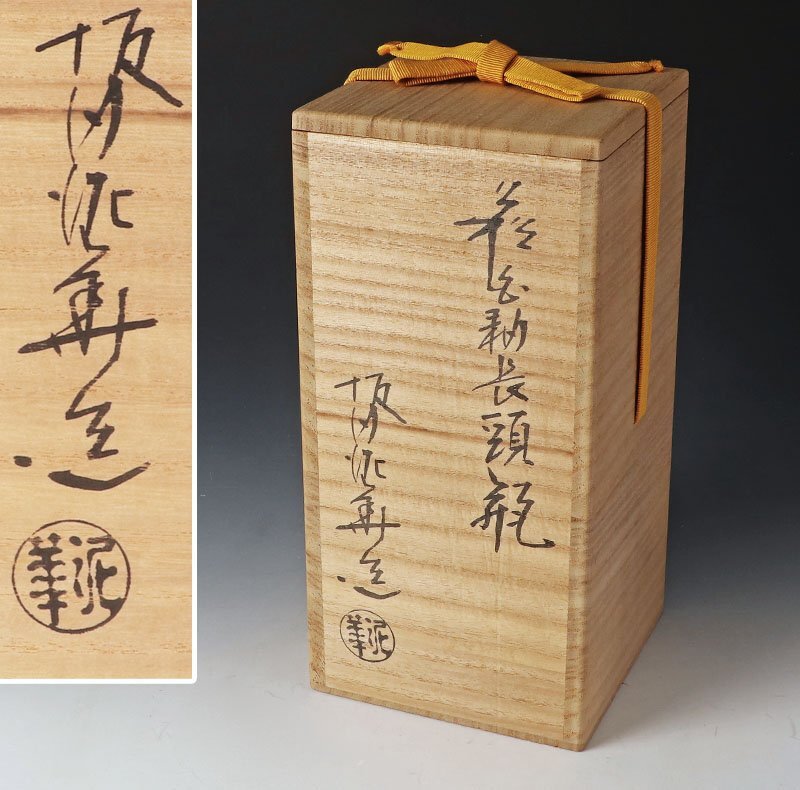 坂田泥華造
泥華
萩白釉長頸瓶
坂田泥華造
泥華